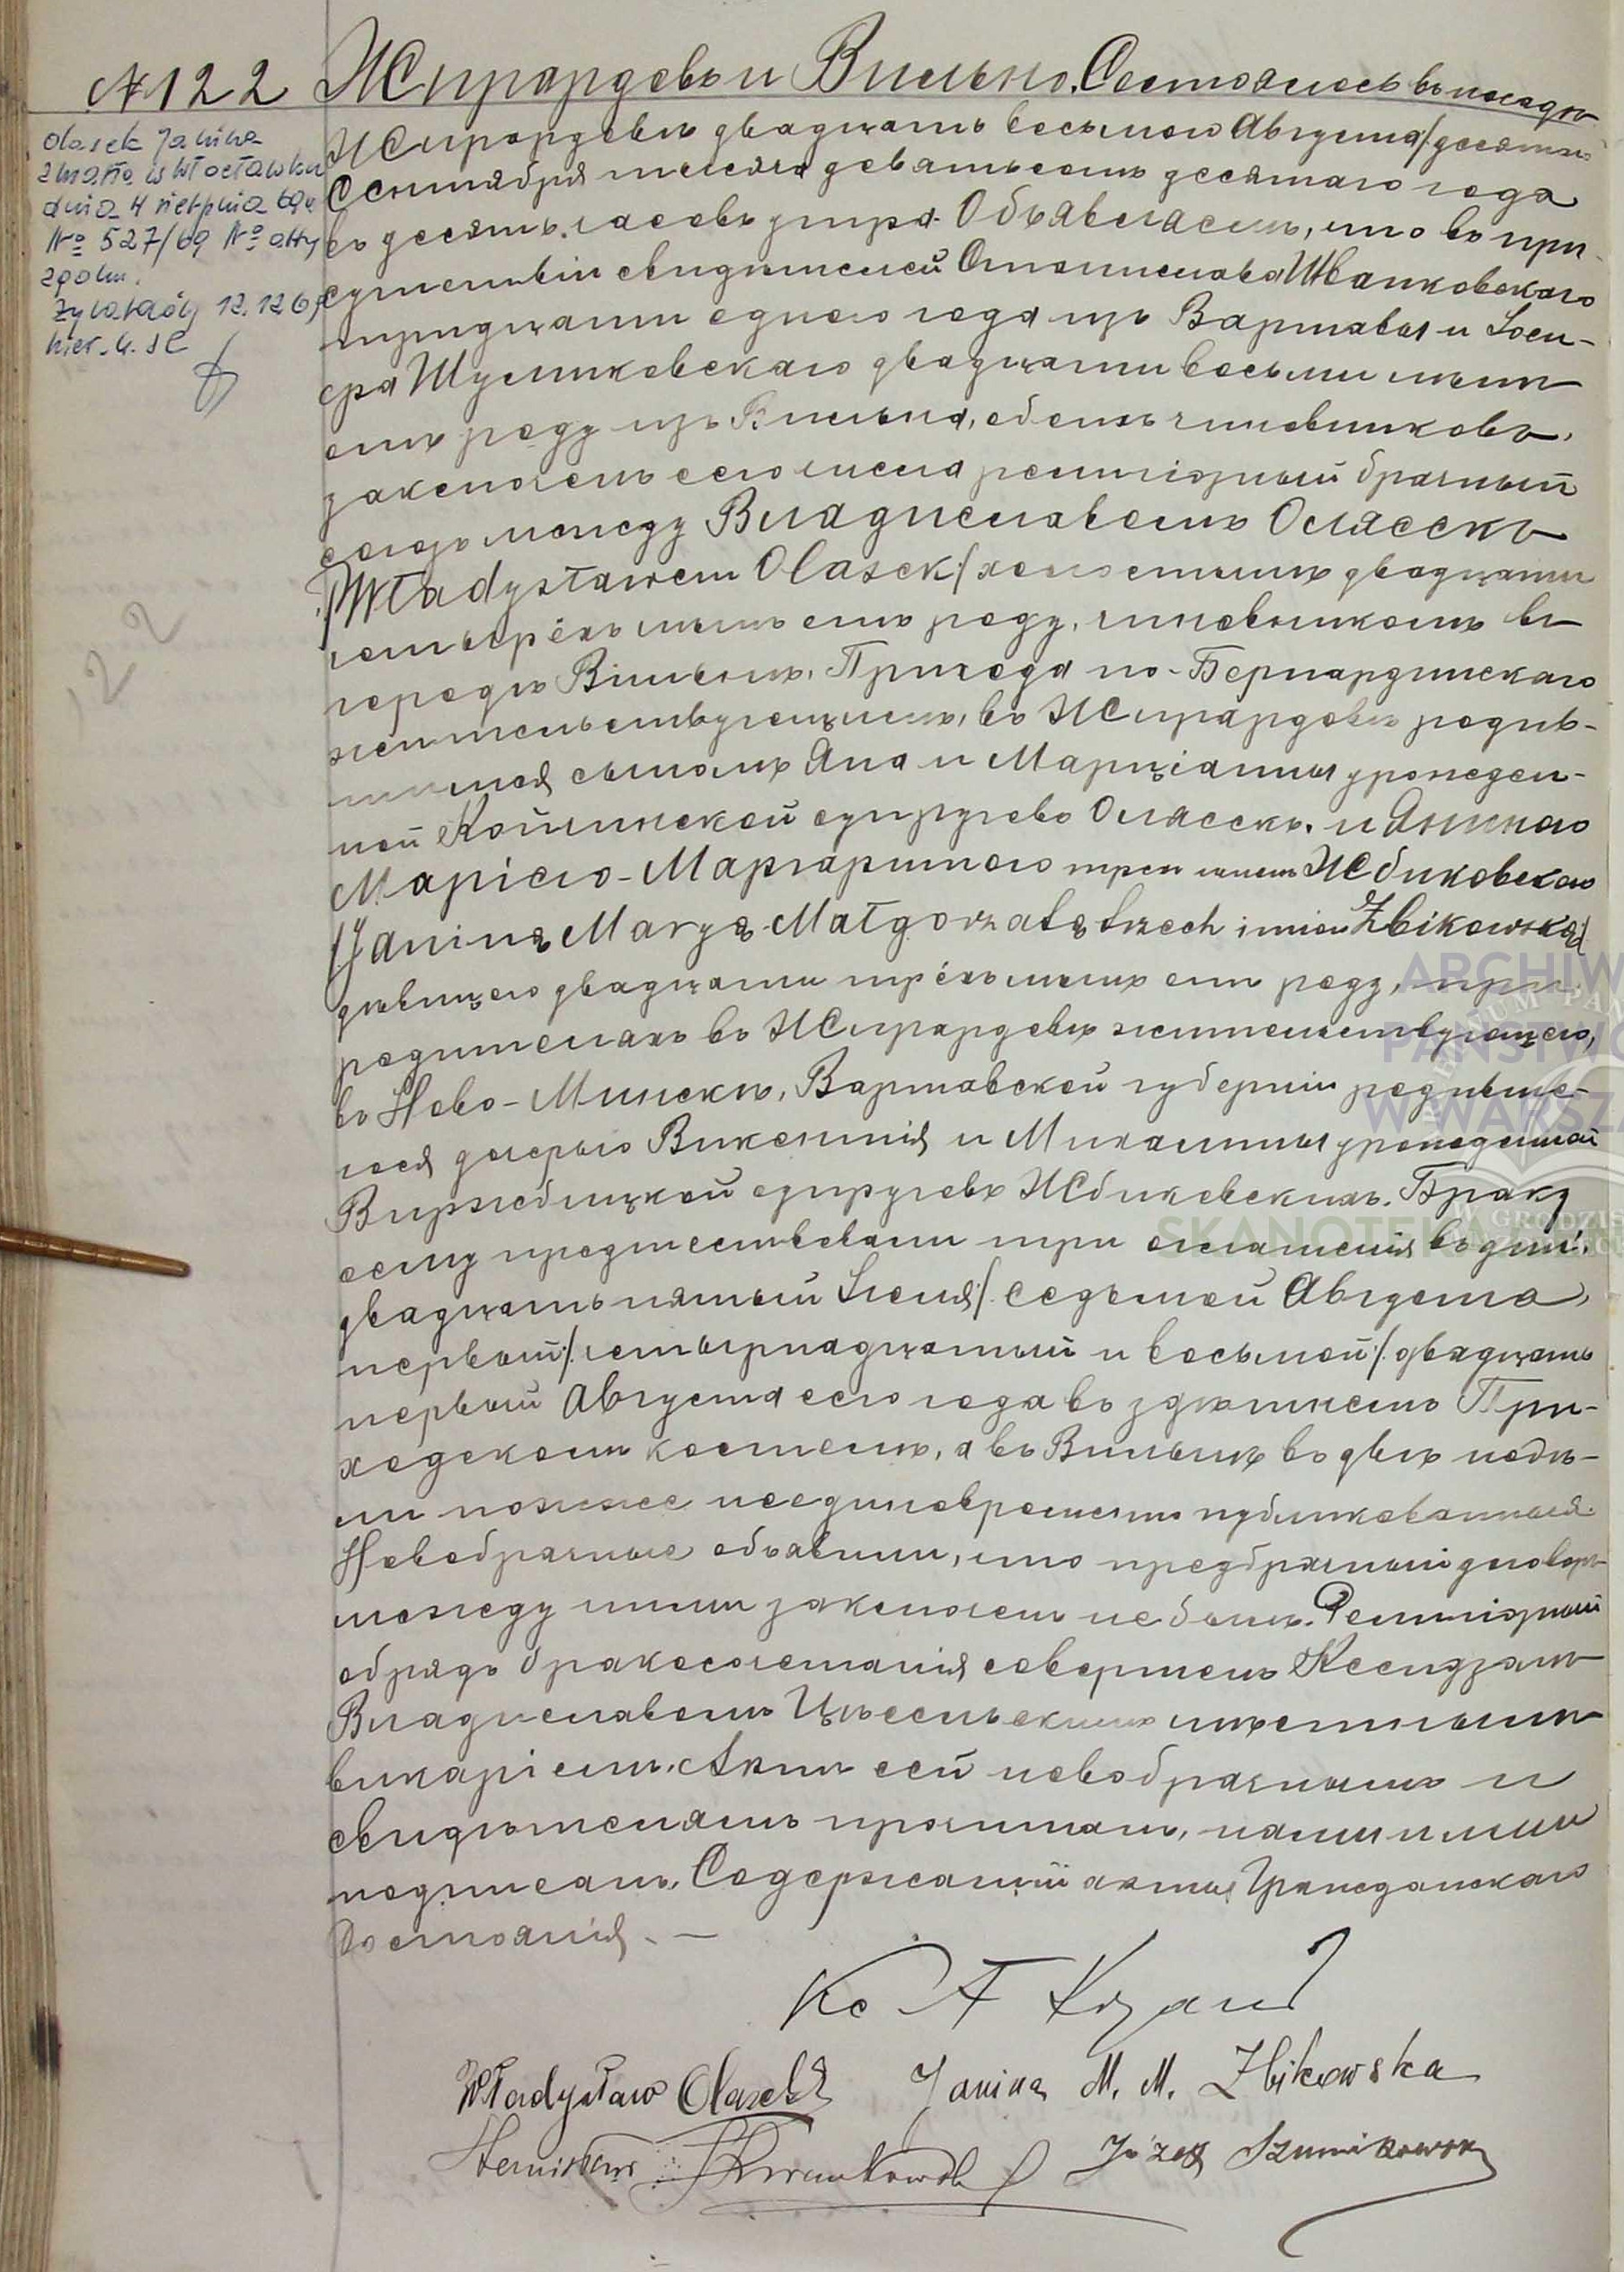 № 122
Olasek Janina
zmarła w Włocławku
dnia 4 sierpnia 69r
Nr 527/69 Nr aktu
zgonu.
Żyrardów 12.12.69
kier. U.S.C
122
Жирардовъ и Вильно. Состоялось въ посадѣ
Жирардовѣ двадцать восьмого Августа /: десятаго
Сентября тысяча девятьсотъ десятаго года
въ десять часовъ утра. Объявляемъ, что въ при-
сутствіи свидѣтелей Станислава
тридцати одного года изъ Варшавы и Іоси-
фа Шумиковскаго двадцати восьми лѣтъ
отъ роду изъ Вильна, обоихъ чиновниковъ,
заключенъ сего числа религіозный брачный
союзъ между Владиславомъ Олясекъ
/: Władysławem Olasek :/ холостымъ двадцати
четырёхъ лѣтъ отъ роду, чиновникомъ въ
городѣ Вильнѣ, Прихода по-Бернардинскаго
жительствующимъ, въ Жирардовѣ родив-
шимся сыномъ Яна и Марціанны урожден-
ной супруговъ Олясекъ. и Яниною
Маріею-Маргаритою трехъ именъ Жбиковскою
/: Janiną Maryą-Małgorzatą trzech imion Zbikowską :/
дѣвицею двадцати трёхъ лѣтъ отъ роду, при
родителяхъ въ Жирардовѣ жительствующею,
въ Ново-Минскѣ, Варшавской губерніи родивше-
юся дочерью Викентія и Михалины урожденной
Виржбицкой супруговъ Жбиковскихъ. Браку
сему предшествовали три оглашенія въ дни:
двадцать пятый Іюля /: седьмой Августа,
первый /: четырнадцатый и восьмой /: двадцать
первый Августа сего года въ здѣшнемъ При-
ходскомъ костелѣ, а въ Вильнѣ въ двѣ недѣ-
ли позже неединовременно публикованныя.
Новобрачные объявили, что предбрачный договоръ
между ними заключенъ не былъ. Религіозный
обрядъ бракосочетанія совершенъ Ксендзомъ
Владиславомъ Цѣсельскимъ мѣстнымъ
викаріемъ. Актъ сей новобрачнымъ и
свидѣтелямъ прочитанъ, нами и ими
подписанъ. Содержащій акты Гражданскаго
Состоянія. —
Кс А
Władysław Olasek Janina M. M. Zbikowska
Stanisław Józef Szumikowski
ARCHIWUM
PAŃSTWOWE
W WARSZAWIE
SKANOTEKA